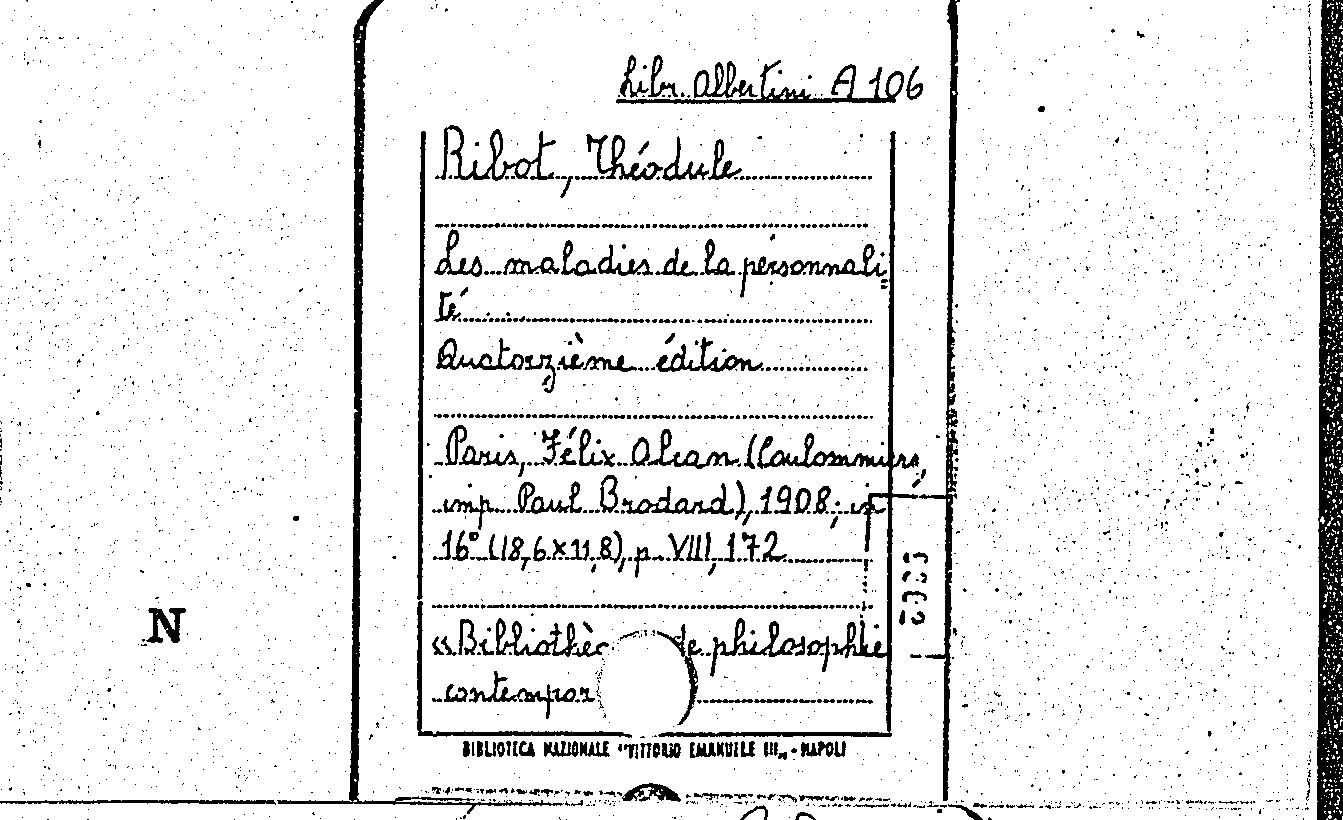 Libr. Albertini A 106
Ribot, Théodule
Les maladies de la personnali
té
Quatorzième édition
Paris, Félix Alcan (Coulommiers,
imp. Paul Brodard), 1908; in
16° (18,6x11,8), p. VIII, 172
«Bibliothè de philosophie
contempor
N
BIBLIOTECA NAZIONALE "VITTORIO EMANUELE III" - NAPOLI